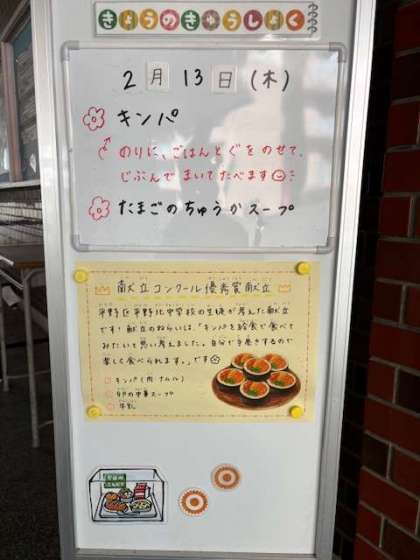 きょうのきゅうしょく
2月13日(木)
キンパ
のりに、ごはんとぐをのせて、
じぶんでまいてたべます
たまごのちゅうかスープ
献立コンクール優秀賞献立
平野区平野北中学校の生徒が考えた献立
です!献立のねらいは、「キンパを給食で食べて
みたいと思い考えました。自分で手巻きするので
楽しく食べられます。」です
キンパ(肉・ナムル)
卵の中華スープ
牛乳